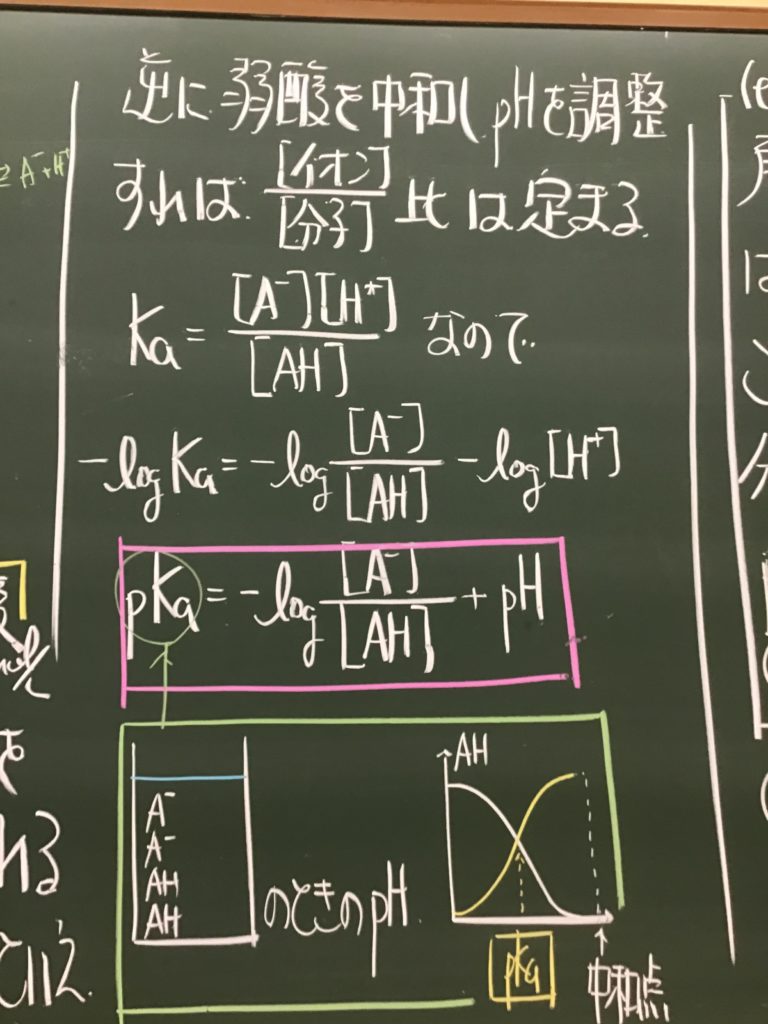 逆に弱酸を中和し pHを調整
すれば [イオン]/[分子] 比は定まる
Ka = [A⁻][H⁺]/[AH] なので
-log Ka = -log [A⁻]/[AH] - log [H⁺]
pKa = -log [A⁻]/[AH] + pH
A⁻
A⁻
AH
AH
のときのpH
AH
pKa
中和点
A⁻+H⁺
mol/L
を
れる
といえる